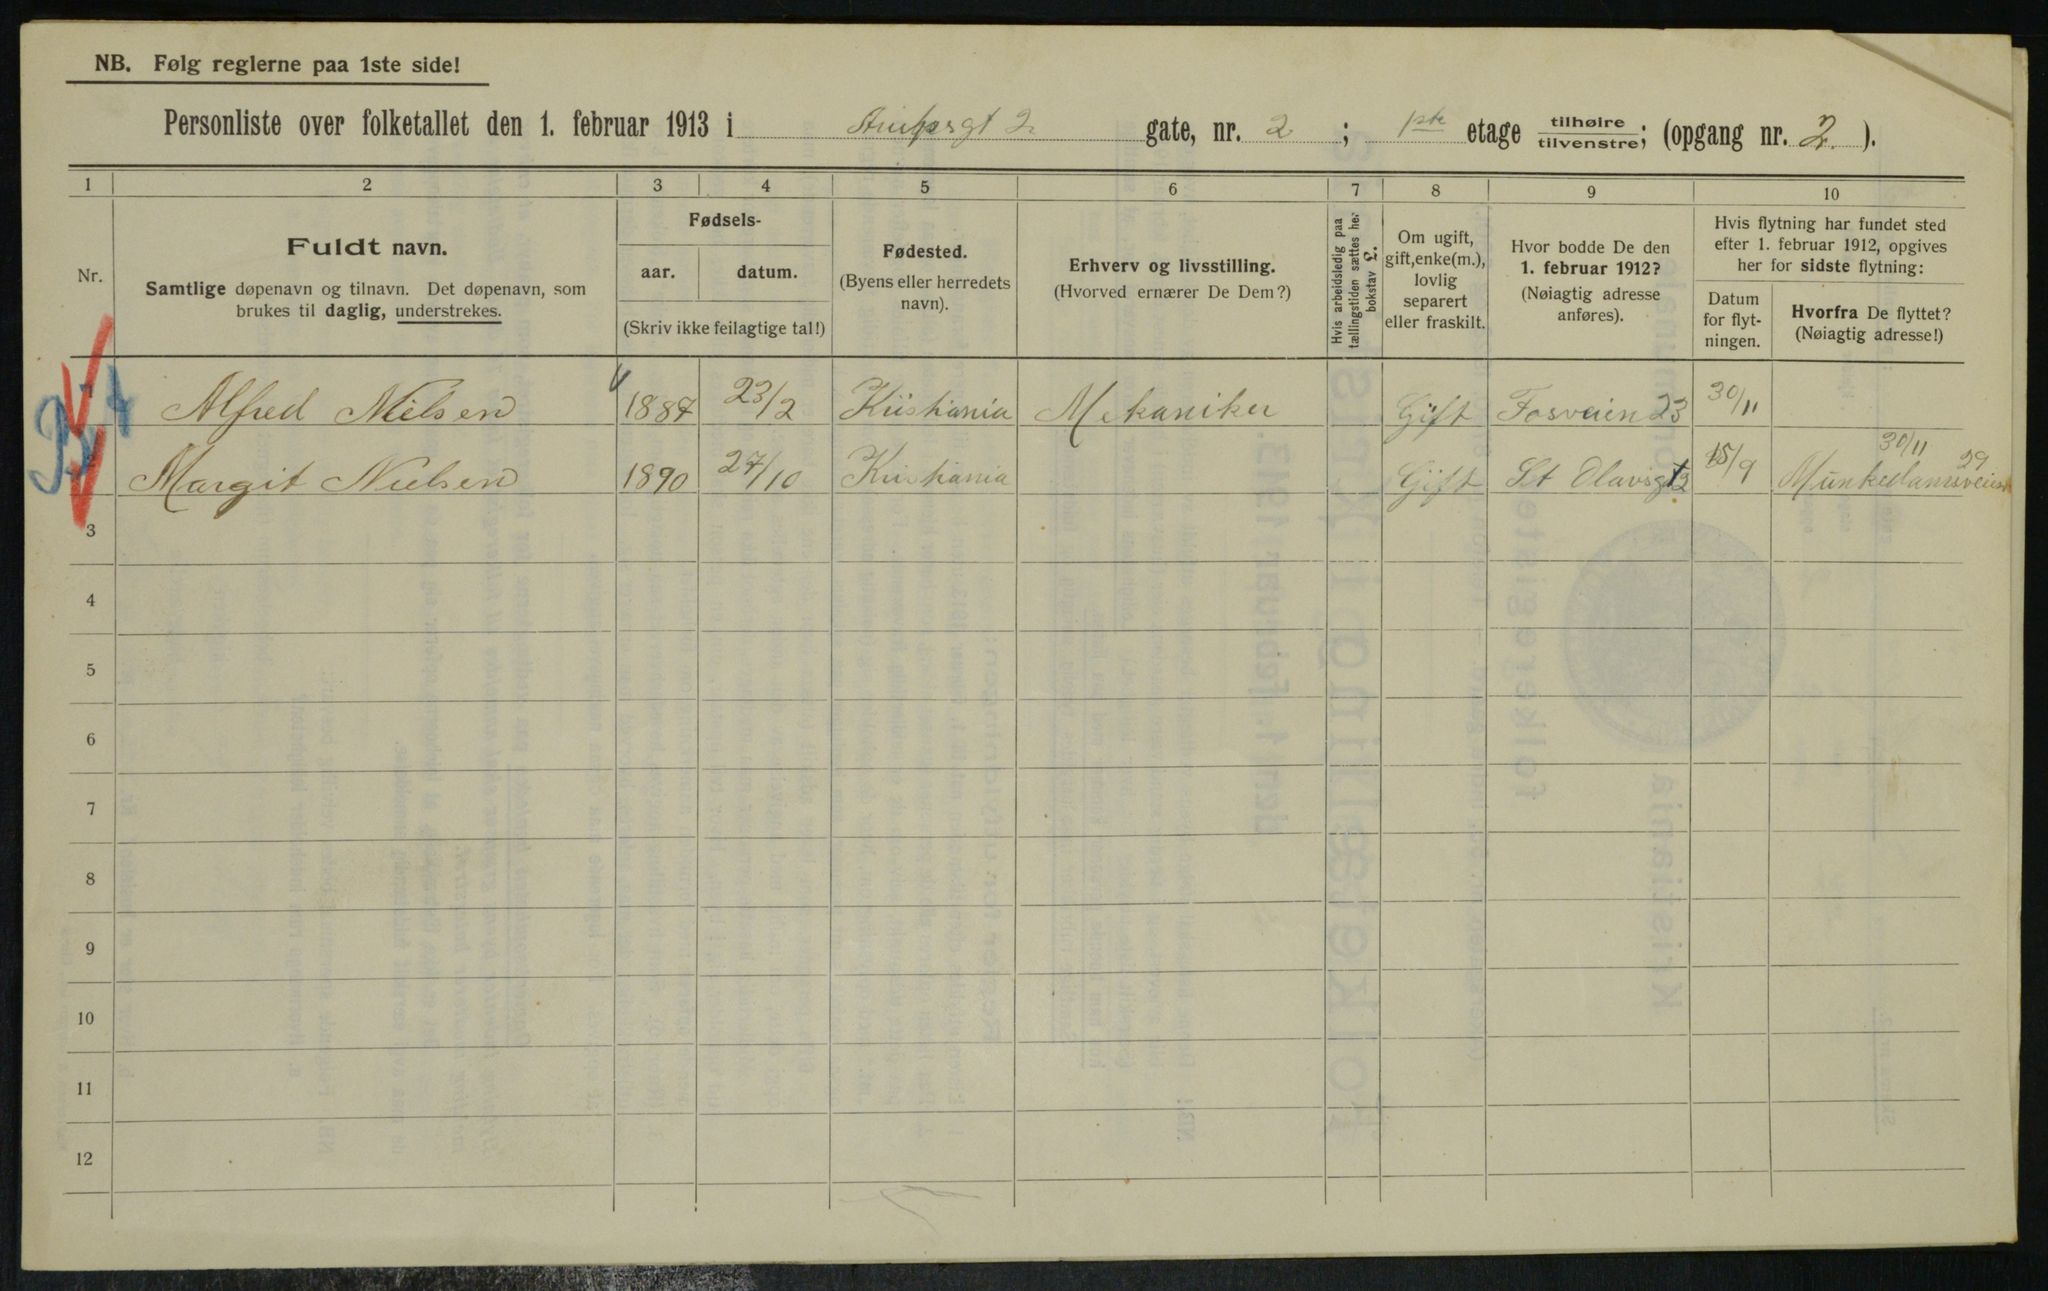 NB. Følg reglerne paa 1ste side!
Personliste over folketallet den 1. februar 1913 i gate, nr. 2; 1ste etage tilhøire tilvenstre; (opgang nr. 2.).
1 2 3 4 5 6 7 8 9 10
Nr.
Fuldt navn.
Samtlige døpenavn og tilnavn. Det døpenavn, som
brukes til daglig, understrekes.
Fødsels-
aar. datum.
(Skriv ikke feilagtige tal!)
Fødested.
(Byens eller herredets
navn).
Erhverv og livsstilling.
(Hvorved ernærer De Dem?)
Hvis arbeidsledig paa
tællingstiden sættes her
bokstav L.
Om ugift,
gift, enke(m.),
lovlig
separert
eller fraskilt.
Hvor bodde De den
1. februar 1912?
(Nøiagtig adresse
anføres).
Hvis flytning har fundet sted
efter 1. februar 1912, opgives
her for sidste flytning:
Datum
for flyt-
ningen.
Hvorfra De flyttet?
(Nøiagtig adresse!)
1 Alfred Nielsen 1887 23/2 Kristiania Mekaniker Gift Fosveien 23 30/11
2 Margit Nielsen 1890 27/10 Kristiania Gift St Olavsgt 15/9 30/11 Munkedamsveien 29
3
4
5
6
7
8
9
10
11
12